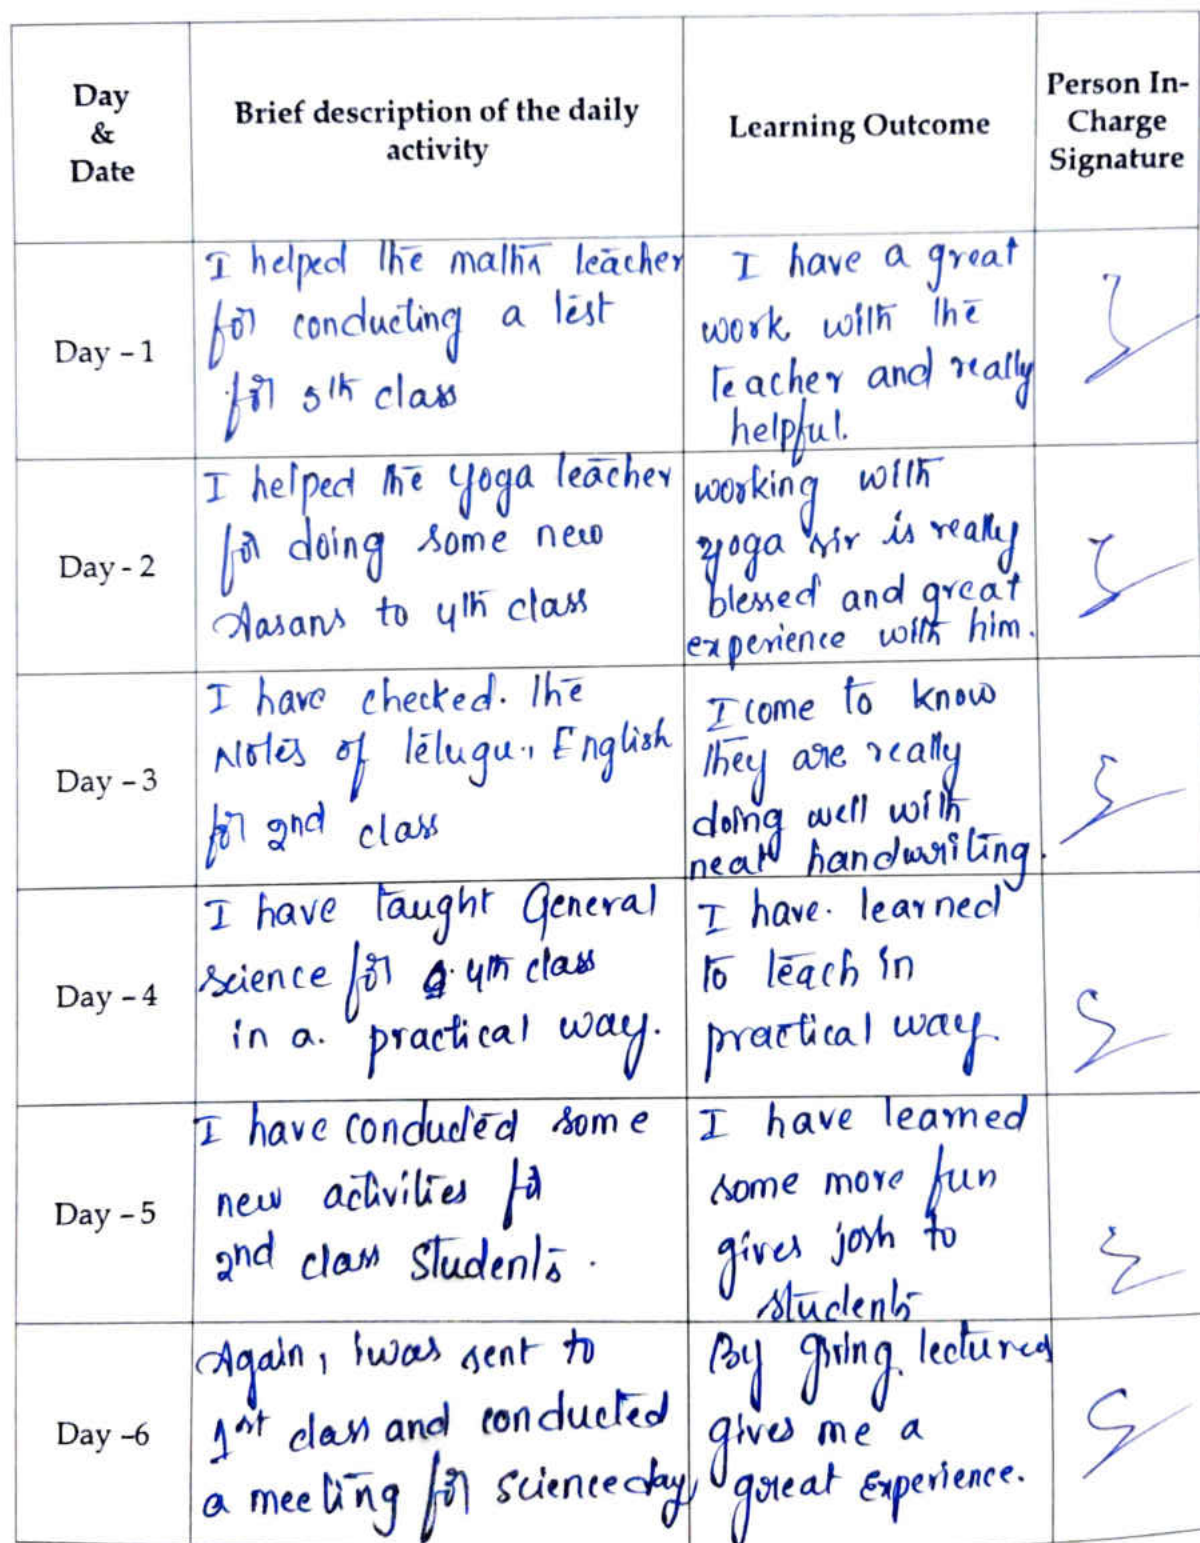 Day
&
Date
Brief description of the daily
activity
Learning Outcome
Person In-
Charge
Signature
Day - 1
I helped the maths teacher
for conducting a test
for 5th class
I have a great
work with the
teacher and really
helpful.
Day - 2
I helped the yoga teacher
for doing some new
Aasans to 4th class
working with
yoga sir is really
blessed and great
experience with him.
Day - 3
I have checked. the
Notes of Telugu, English
for 2nd class
I come to know
they are really
doing well with
neat handwriting.
Day - 4
I have taught General
science for 4th class
in a. practical way.
I have. learned
to teach in
practical way.
Day - 5
I have conducted some
new activities for
2nd class students.
I have learned
some more fun
gives josh to
students
Day -6
Again, i was sent to
1st class and conducted
a meeting for science day,
By giving lectures
gives me a
great Experience.